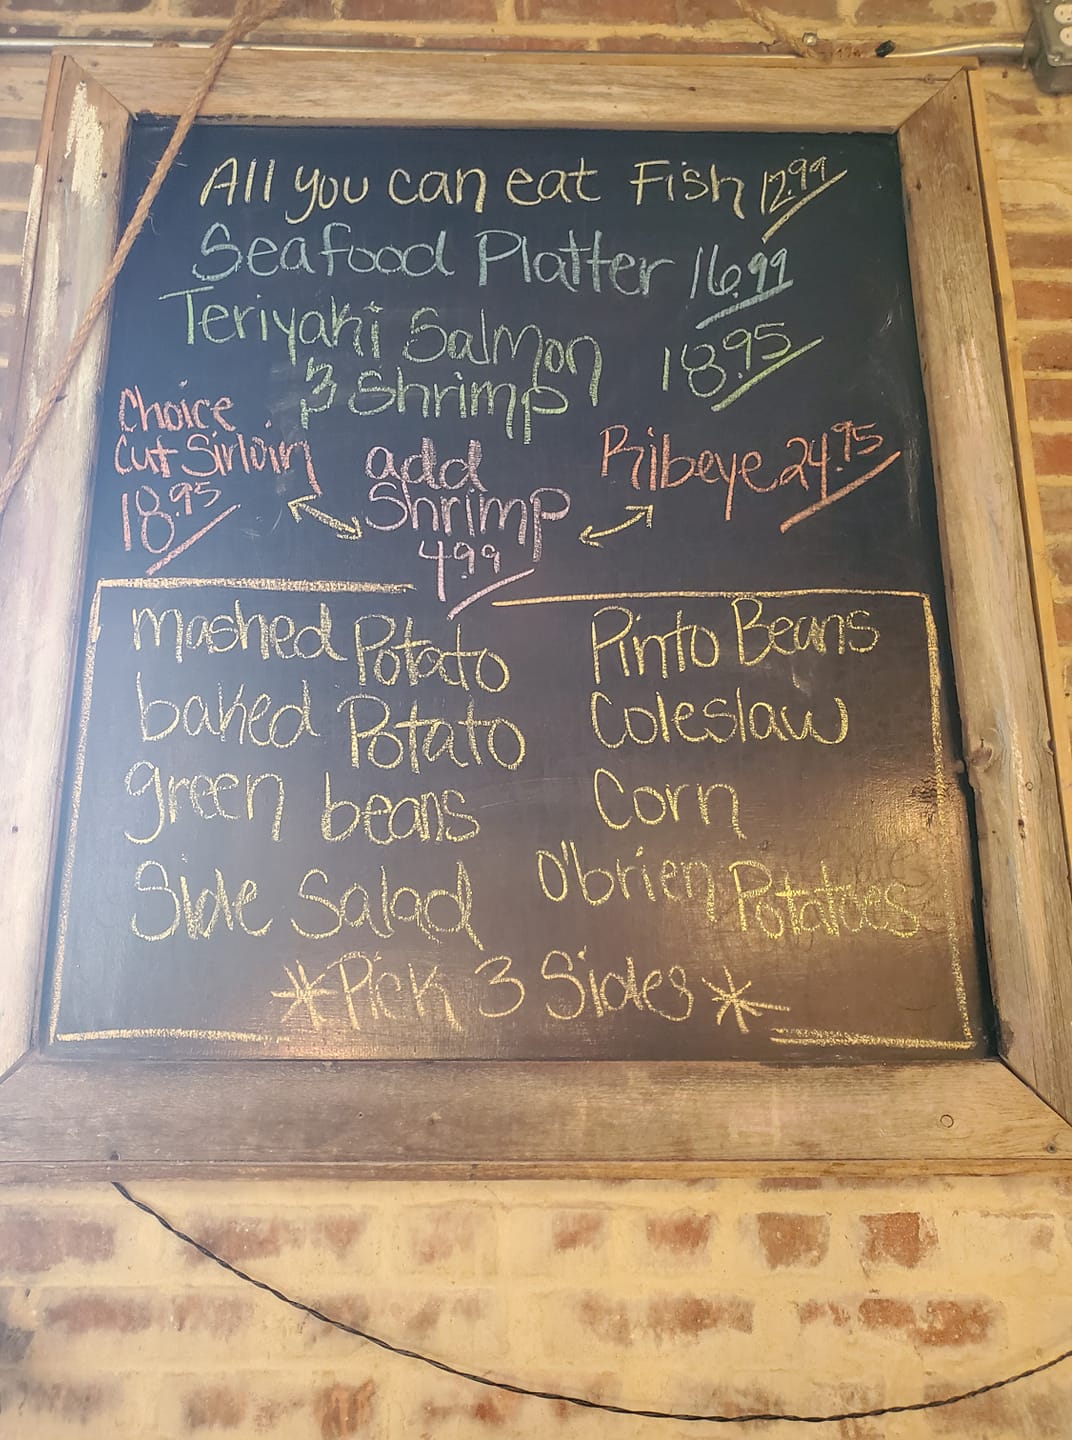 All you can eat Fish 12.99
Seafood Platter 16.99
Teriyaki Salmon
& Shrimp 18.95
Choice
Cut Sirloin
18.95
add
Shrimp
4.99
Ribeye 24.95
mashed Potato
baked Potato
green beans
Side Salad
Pinto Beans
Coleslaw
Corn
O'brien Potatoes
*Pick 3 Sides*